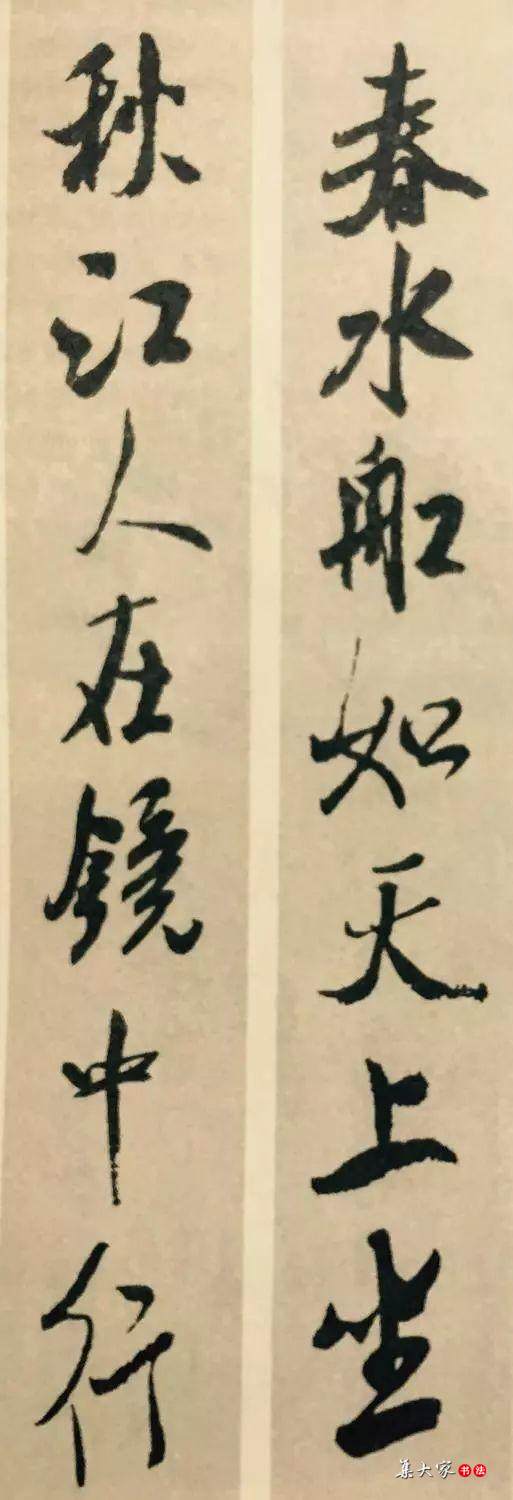 春水船如天上坐
秋江人在镜中行
集大家书法